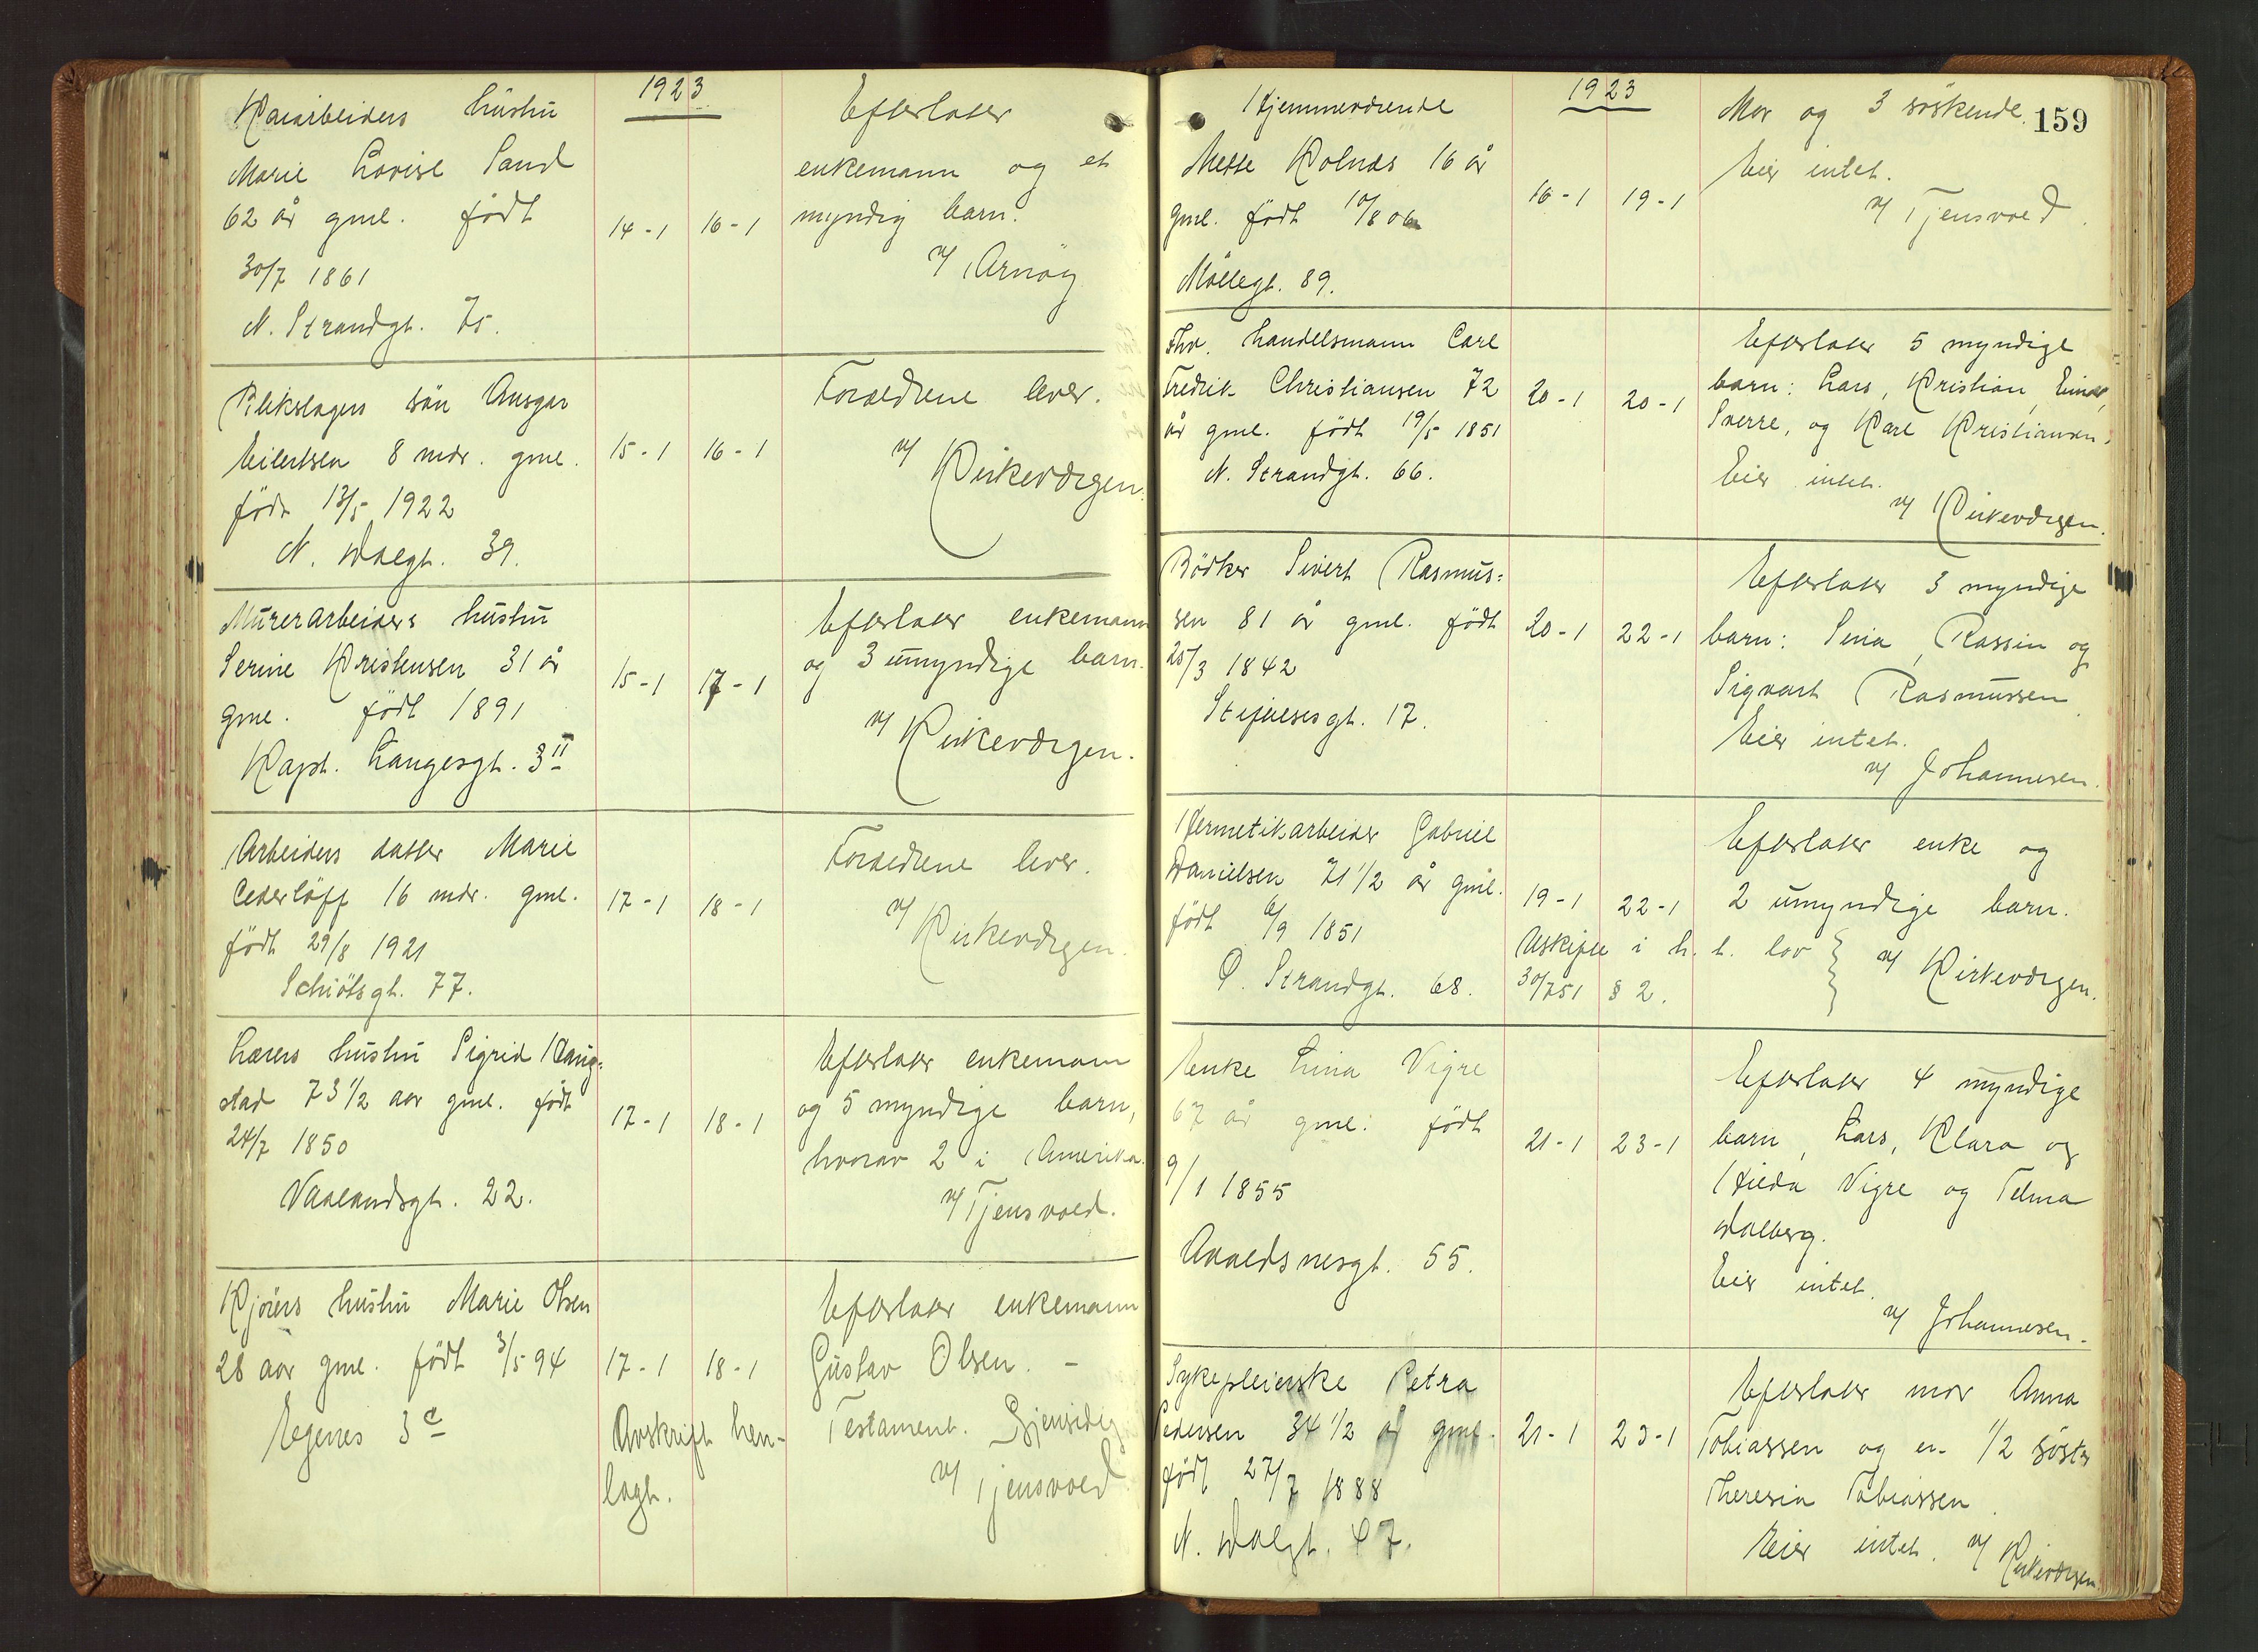 1923
Kaiarbeiders hustru
Marie Lovise Sand
62 år gml. født
30/7 1861
N. Strandgt. 75.
14-1 16-1
Efterlater
enkemann og et
myndig barn.
v/ Arnøy
Blikslagers søn Ansgar
Eilertsen 8 mdr. gml.
født 13/5 1922
N. Dalgt. 39.
15-1 16-1
Forældrene lever.
v/ Kirkeværgen.
Murerarbeiders hustru
Serine Kristensen 31 år
gml. født 1891
Kapt. Langesgt. 3 II
15-1 17-1
Efterlater enkemann
og 3 umyndige barn.
v/ Kirkeværgen.
Arbeiders datter Marie
Cederløff 16 mdr. gml.
født 29/8 1921
Schiøtsgt. 77.
17-1 18-1
Forældrene lever.
v/ Kirkeværgen.
Lærers hustru Sigrid Haug=
stad 73 1/2 aar gml. født
24/7 1850
Vaalandsgt. 22.
17-1 18-1
Efterlater enkemann
og 5 myndige barn,
hvorav 2 i Amerika.
v/ Tjensvold.
Kjørers hustru Marie Olsen
28 aar gml. født 3/5 94
Egenes 3 c
17-1 18-1
Avskrift hen-
lagt.
Efterlater enkemann
Gustav Olsen. -
Testament. Gjensidig
v/ Tjensvold
159
1923
Hjemmeværende
Mette Kolnæs 16 år
gml. født 10/8 06
Møllegt. 89.
16-1 19-1
Mor og 3 søskende.
Eier intet.
v/ Tjensvold.
Fhv. handelsmann Carl
Fredrik Christiansen 72
år gml. født 19/5 1851
N. Strandgt. 66.
20-1 20-1
Efterlater 5 myndige
barn: Lars, Kristian, Einar,
Sverre, og Karl Kristiansen.
Eier intet.
v/ Kirkeværgen.
Bødker Sivert Rasmus=
sen 81 år gml. født
25/3 1842
Stiftelsesgt. 17.
20-1 22-1
Efterlater 3 myndige
barn: Sina, Rassin og
Sigvart Rasmussen.
Eier intet.
v/ Johannesen.
Hermetikarbeider Gabriel
Danielsen 71 1/2 år gml.
født 6/9 1851
Ø. Strandgt. 68.
19-1 22-1
Uskifte i h. t. lov
30/7 51 § 2.
Efterlater enke og
2 umyndige barn.
v/ Kirkeværgen.
Enke Lina Vigre
67 år gml: født
9/1 1855
Avaldsnesgt. 55.
21-1 23-1
Efterlater 4 myndige
barn, Lars, Klara og
Hilda Vigre og Telma
Dalberg.
Eier intet.
v/ Johannesen.
Sykepleierske Petra
Pedersen 34 1/2 år gml.
født 27/7 1888
N. Dalgt. 47.
21-1 23-1
Efterlater mor Anna
Tobiassen og en 1/2 søster
Theresia Tobiassen
Eier intet. v/ Kirkeværgen.